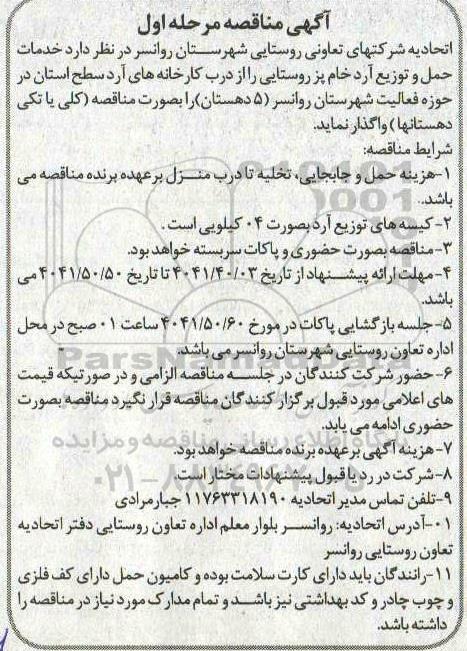 آگهی مناقصه مرحله اول
اتحادیه شرکتهای تعاونی روستایی شهرستان روانسر در نظر دارد خدمات
حمل و توزیع آرد خام پز روستایی را از درب کارخانه های آرد سطح استان در
حوزه فعالیت شهرستان روانسر (۵ دهستان) را بصورت مناقصه (کلی یا تکی
دهستانها) واگذار نماید.
شرایط مناقصه:
۱-هزینه حمل و جابجایی، تخلیه تا درب منزل بر عهده برنده مناقصه می
باشد.
۲-کیسه های توزیع آرد بصورت ۰۴ کیلویی است.
۳-مناقصه بصورت حضوری و پاکات سربسته خواهد بود.
۴-مهلت ارائه پیشنهاد از تاریخ ۴۰۴۱/۴۰/۰۳ تا تاریخ ۴۰۴۱/۵۰/۵۰ می
باشد.
۵-جلسه بازگشایی پاکات در مورخ ۴۰۴۱/۵۰/۶۰ ساعت ۰۱ صبح در محل
اداره تعاون روستایی شهرستان روانسر می باشد.
۶-حضور شرکت کنندگان در جلسه مناقصه الزامی و در صورتیکه قیمت
های اعلامی مورد قبول برگزار کنندگان مناقصه قرار نگیرد مناقصه بصورت
حضوری ادامه می یابد.
۷-هزینه آگهی بر عهده برنده مناقصه خواهد بود.
۸-شرکت در رد یا قبول پیشنهادات مختار است.
۹-تلفن تماس مدیر اتحادیه ۱۱۷۶۳۳۱۸۱۹۰ جبار مرادی
۰۱-آدرس اتحادیه: روانسر بلوار معلم اداره تعاون روستایی دفتر اتحادیه
تعاون روستایی روانسر
۱۱-رانندگان باید دارای کارت سلامت بوده و کامیون حمل دارای کف فلزی
و چوب چادر و کد بهداشتی نیز باشد و تمام مدارک مورد نیاز در مناقصه را
داشته باشد.